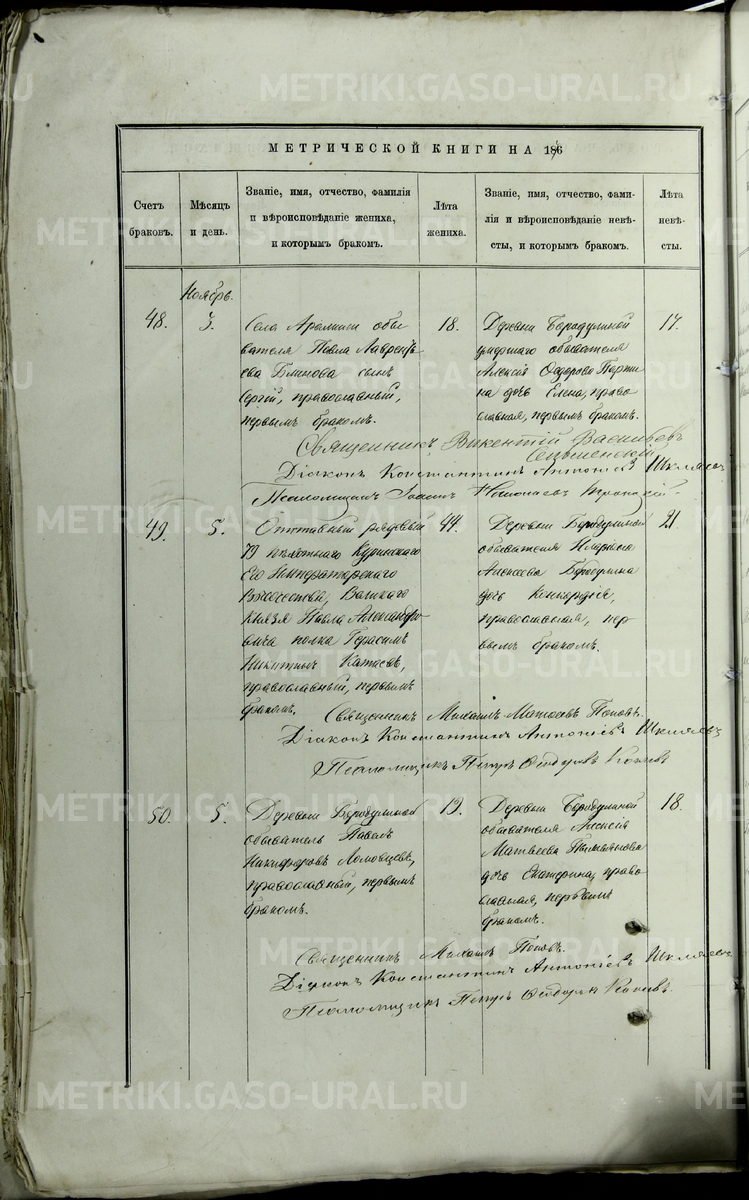 METRIKI.GASO-URAL.RU
МЕТРИЧЕСКОЙ КНИГИ НА 186
Счетъ браковъ.
Мѣсяцъ и день.
Званіе, имя, отчество, фамилія
и вѣроисповѣданіе жениха,
и которымъ бракомъ.
Лѣта жениха.
Званіе, имя, отчество, фами-
лія и вѣроисповѣданіе невѣ-
сты, и которымъ бракомъ.
Лѣта невѣ-
сты.
Ноябрь.
48.
3.
Села Арамили обы
вателя Павла Лаврентье
ева сынъ
Сергій, православный,
первымъ бракомъ.
18.
Деревни Бородулиной
умершаго обывателя
Алексія Ѳедорова
дочь Елена, право
славная, первымъ бракомъ.
17.
Священникъ Викентій Васильевъ
Діаконъ Константинъ Антоніевъ Шкляевъ
Псаломщикъ Іоаннъ Николаевъ Троицкій
49.
5.
Отставный рядовый
79 пѣхотнаго Куринскаго
Его Императорскаго
Высочества, Великаго
Князя Павла Александро
вича полка Герасимъ
Никитинъ Катаевъ,
православный, первымъ
бракомъ.
44.
Деревни Бородулиной
обывателя Иларіона
Алексеева Бородулина
дочь Конкордія,
православная, пер
вымъ бракомъ.
21.
Священникъ Михаилъ Матѳеевъ Поповъ.
Діаконъ Константинъ Антоніевъ Шкляевъ
Псаломщикъ Петръ Ѳедоровъ
50.
5.
Деревни Бородулиной
обыватель Павелъ
Никифоровъ Ломовцевъ,
православный, первымъ
бракомъ.
19.
Деревни Бородулиной
обывателя Алексія
Матвеева
дочь Екатерина, право
славная, первымъ
бракомъ.
18.
Священникъ Михаилъ Поповъ.
Діаконъ Константинъ Антоніевъ Шкляевъ
Псаломщикъ Петръ Ѳедоровъ